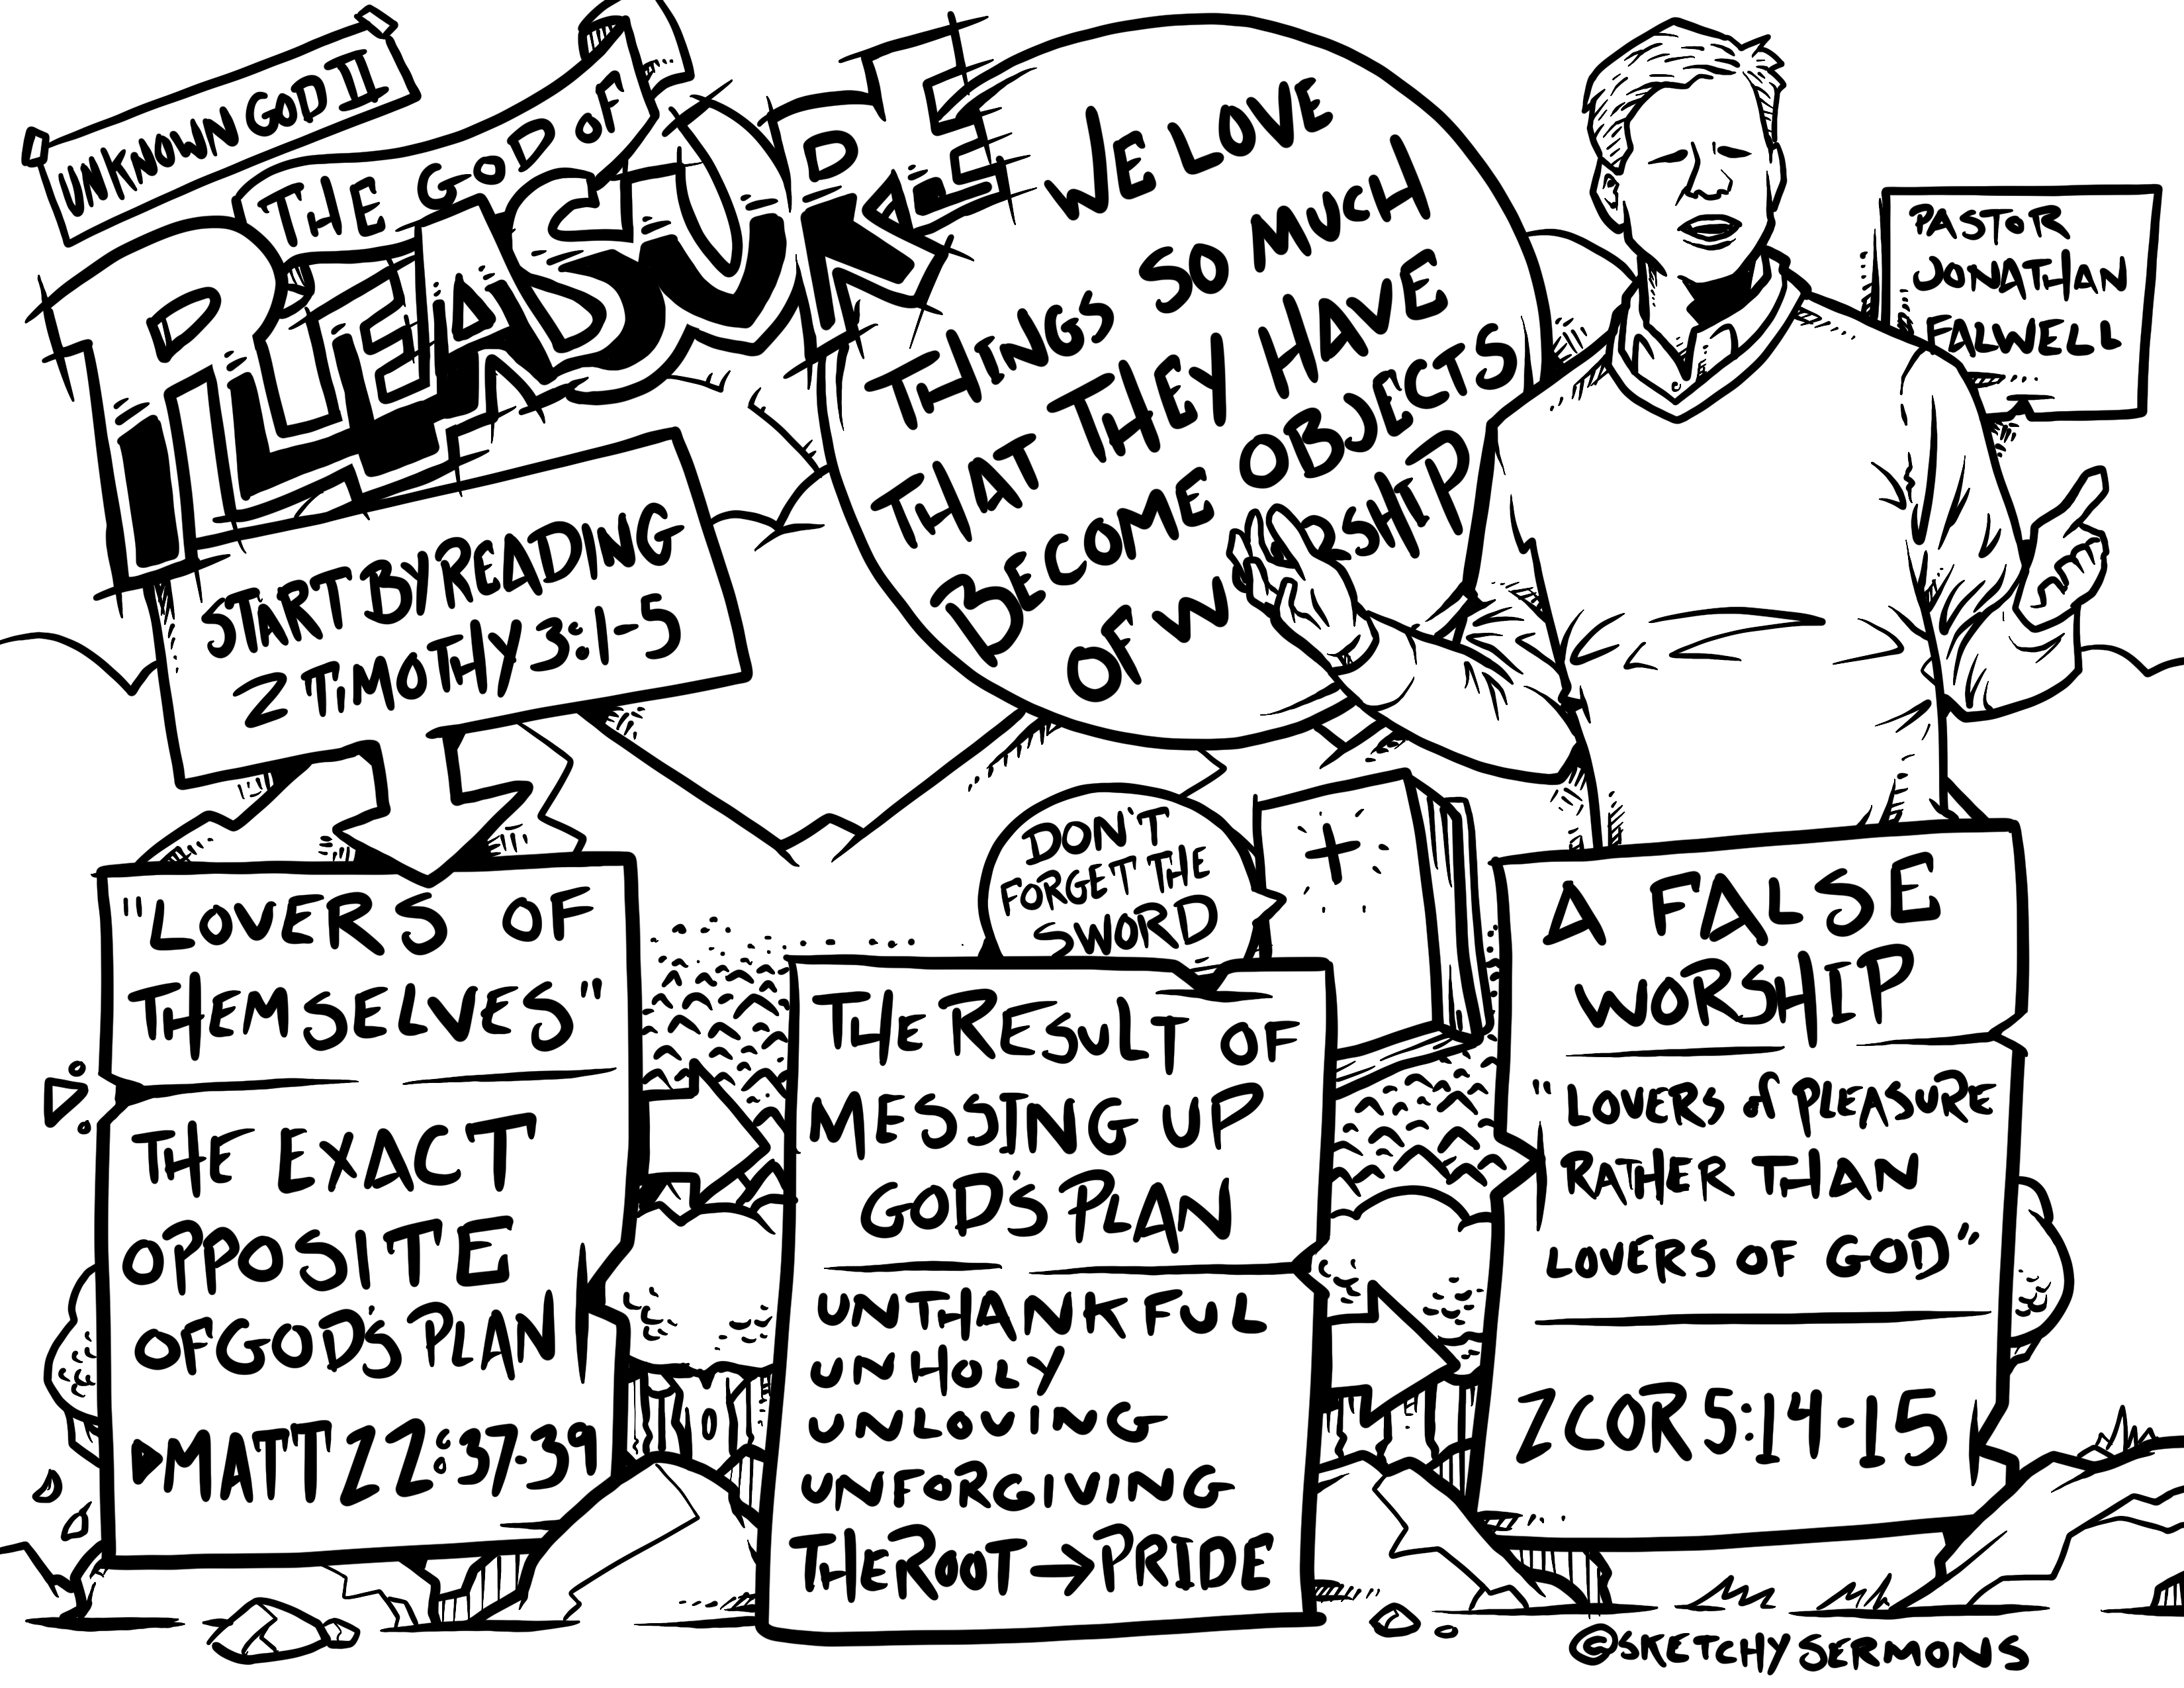 UNKNOWN GOD II
THE GOD OF
PLEASURE
START BY READING
2 TIMOTHY 3:1-5
WE LOVE
THINGS SO MUCH
THAT THEY HAVE
BECOME OBJECTS
OF WORSHIP
PASTOR
JONATHAN
FALWELL
DON'T
FORGET THE
SWORD
"LOVERS OF
THEMSELVES"
THE EXACT
OPPOSITE
OF GOD'S PLAN
MATT 22:37-39
THE RESULT OF
MESSING UP
GOD'S PLAN
UNTHANKFUL
UNHOLY
UNLOVING
UNFORGIVING
THE ROOT → PRIDE
A FALSE
WORSHIP
"LOVERS of PLEASURE
RATHER THAN
LOVERS OF GOD"
2 COR 5:14-15
@SKETCHY SERMONS